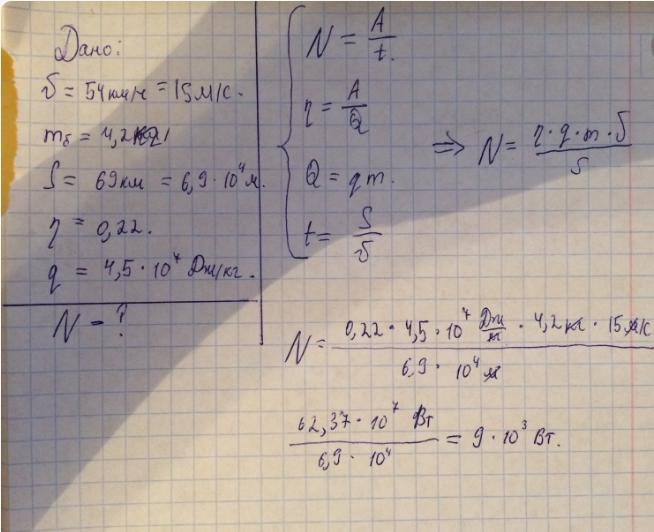 Дано:
υ = 54 км/ч = 15 м/с.
mδ = 4,2 кг
S = 69 км = 6,9 · 10⁴ м.
η = 0,22.
q = 4,5 · 10⁷ Дж/кг.
N - ?
N = A/t.
η = A/Q
Q = qm.
t = S/υ
=> N = η·q·m·υ/S
N = 0,22 · 4,5 · 10⁷ Дж/кг · 4,2 кг · 15 м/с / 6,9 · 10⁴ м
62,37 · 10⁷ Вт / 6,9 · 10⁴ = 9 · 10³ Вт.